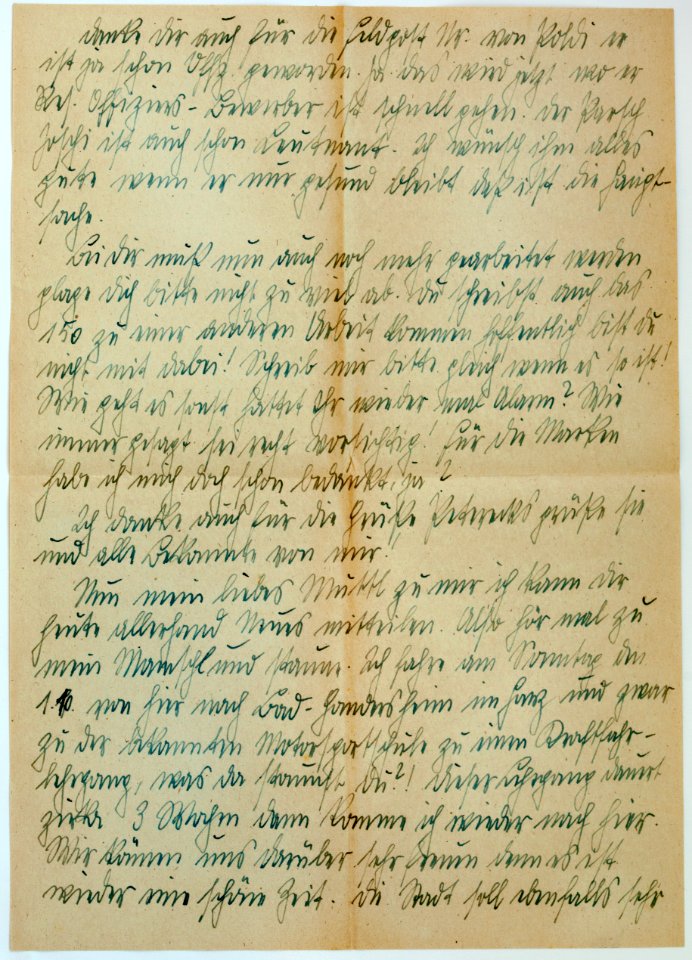 danke dir auch für die Feldpost Nr. von Poldi er
ist ja schon Offz. geworden. Ja das wird jetzt wo er
Res. Offiziers-Bewerber ist schnell gehen. Der
ist auch schon Leutnant. Ich wünsch ihm alles
gute wenn er nur gesund bleibt daß ist die Haupt-
sache.
Bei dir muß nun auch noch mehr gearbeitet werden
plage dich bitte nicht zu viel ab. Du schreibst auch das
150 zu einer anderen Arbeit kommen hoffentlich bist du
nicht mit dabei! Schreib mir bitte gleich wenn es so ist!
Wie geht es sonst hattet Ihr wieder mal Alarm? Wie
immer gesagt sei recht vorsichtig! Für die Marken
habe ich mich doch schon bedankt, ja?
Ich danke auch für die Grüße grüße sie
und alle Bekannte von mir!
Nun mein liebes Muttl zu mir ich kann dir
heute allerhand Neues mitteilen. Also hör mal zu
mein Mamschl und staune. Ich fahre am Sonntag den
1.10. von hier nach Bad-Gandersheim im Harz und zwar
zu der bekannten Motorsportschule zu einen Kraftfahr-
lehrgang, was da staunst du?! Dieser Lehrgang dauert
zirka 3 Wochen dann komme ich wieder nach hier.
Wir können uns darüber sehr freuen denn es ist
wieder eine schöne Zeit. Die Stadt soll ebenfalls sehr